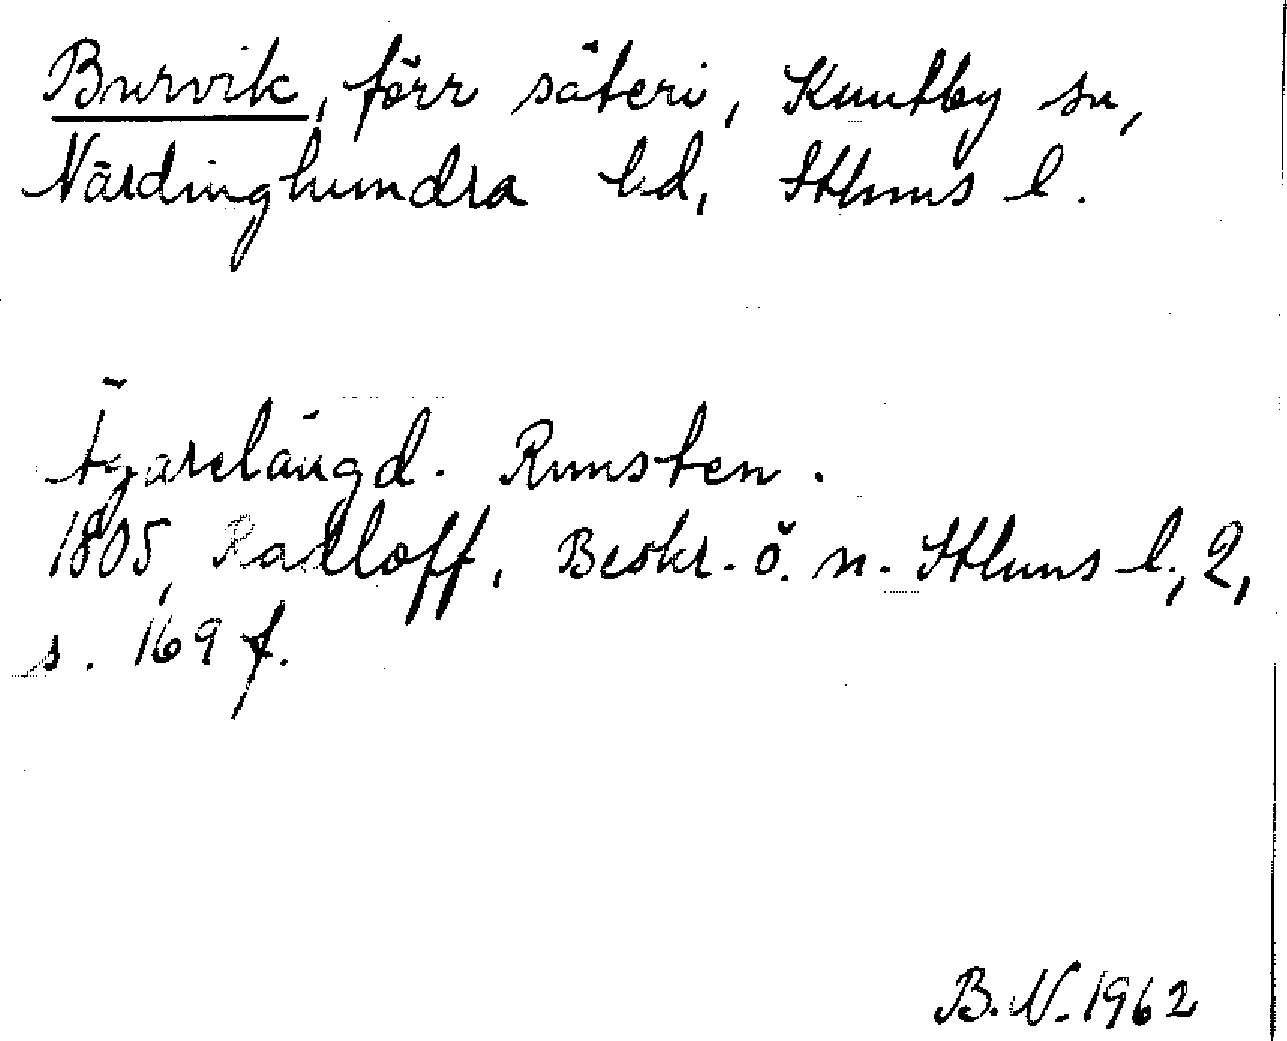 Burvik, förr säteri, Knutby sn,
Närdinghundra hd, Sthlms l.
Ägarelängd. Runsten.
1805, Radloff, Beskr. ö. n. Sthlms l., 2,
s. 169 f.
B. N. 1962